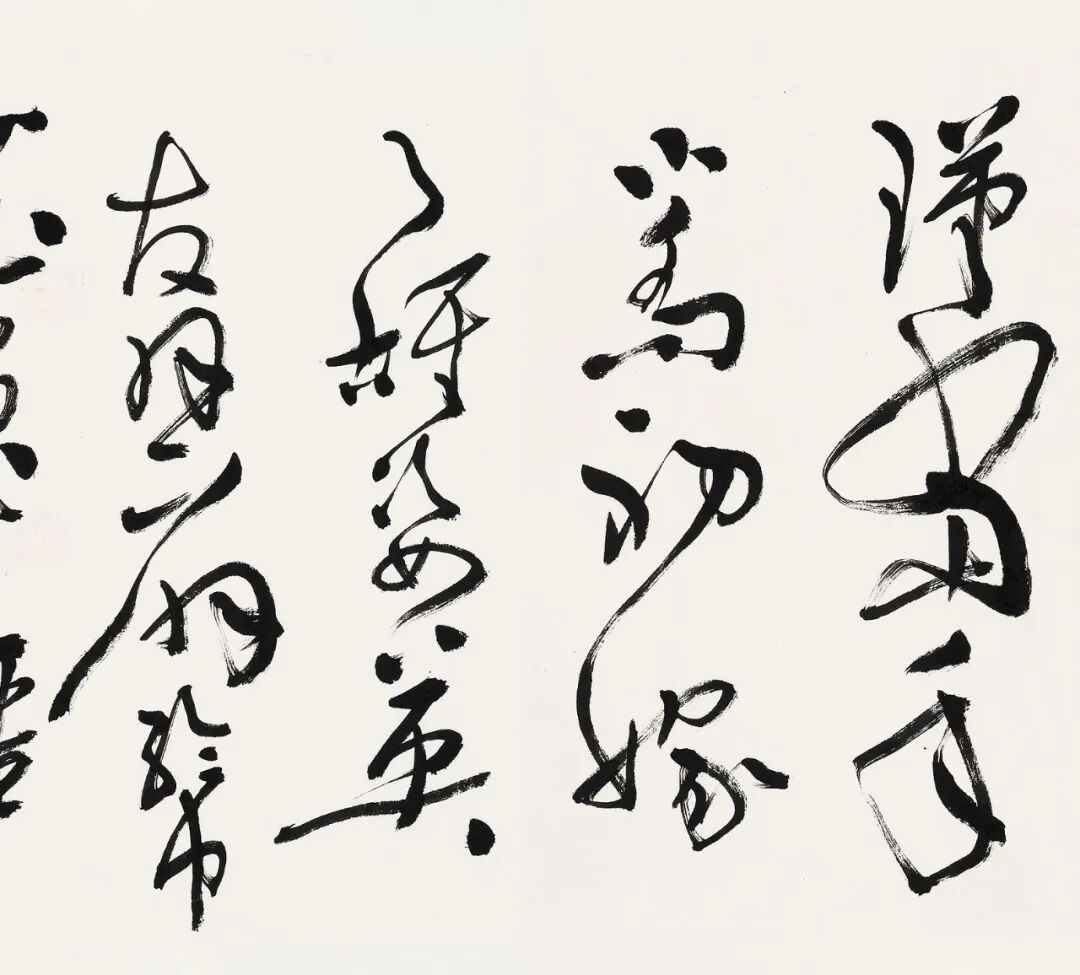 瑾當年
小喬初嫁
了雄姿英
发羽扇綸巾